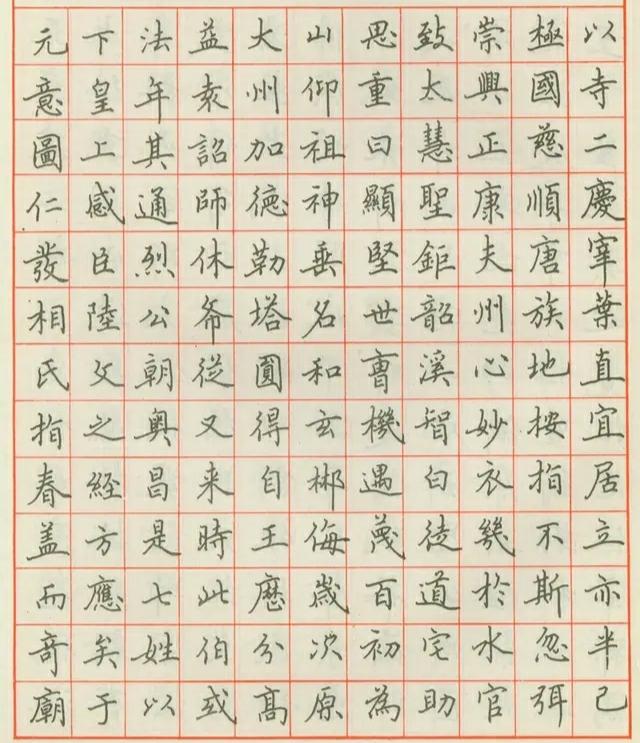 以寺二慶宰葉直宜居立亦半己
極國慈順唐族地按指不斯忽弭
崇興正康夫州心妙衣幾於水官
致太慧聖鉅韶溪智白徒道宅助
思重曰顯堅世曹機遇蔑百初為
山仰祖神垂名和玄郴侮歲次原
大州加德勒塔圓得自王曆分高
益袁詔師休從又来時此伯或
法年其通烈公朝奥昌是七姓以
下皇上感臣陸父之經方應矣于
元意圖仁發相氏指春盖而奇廟